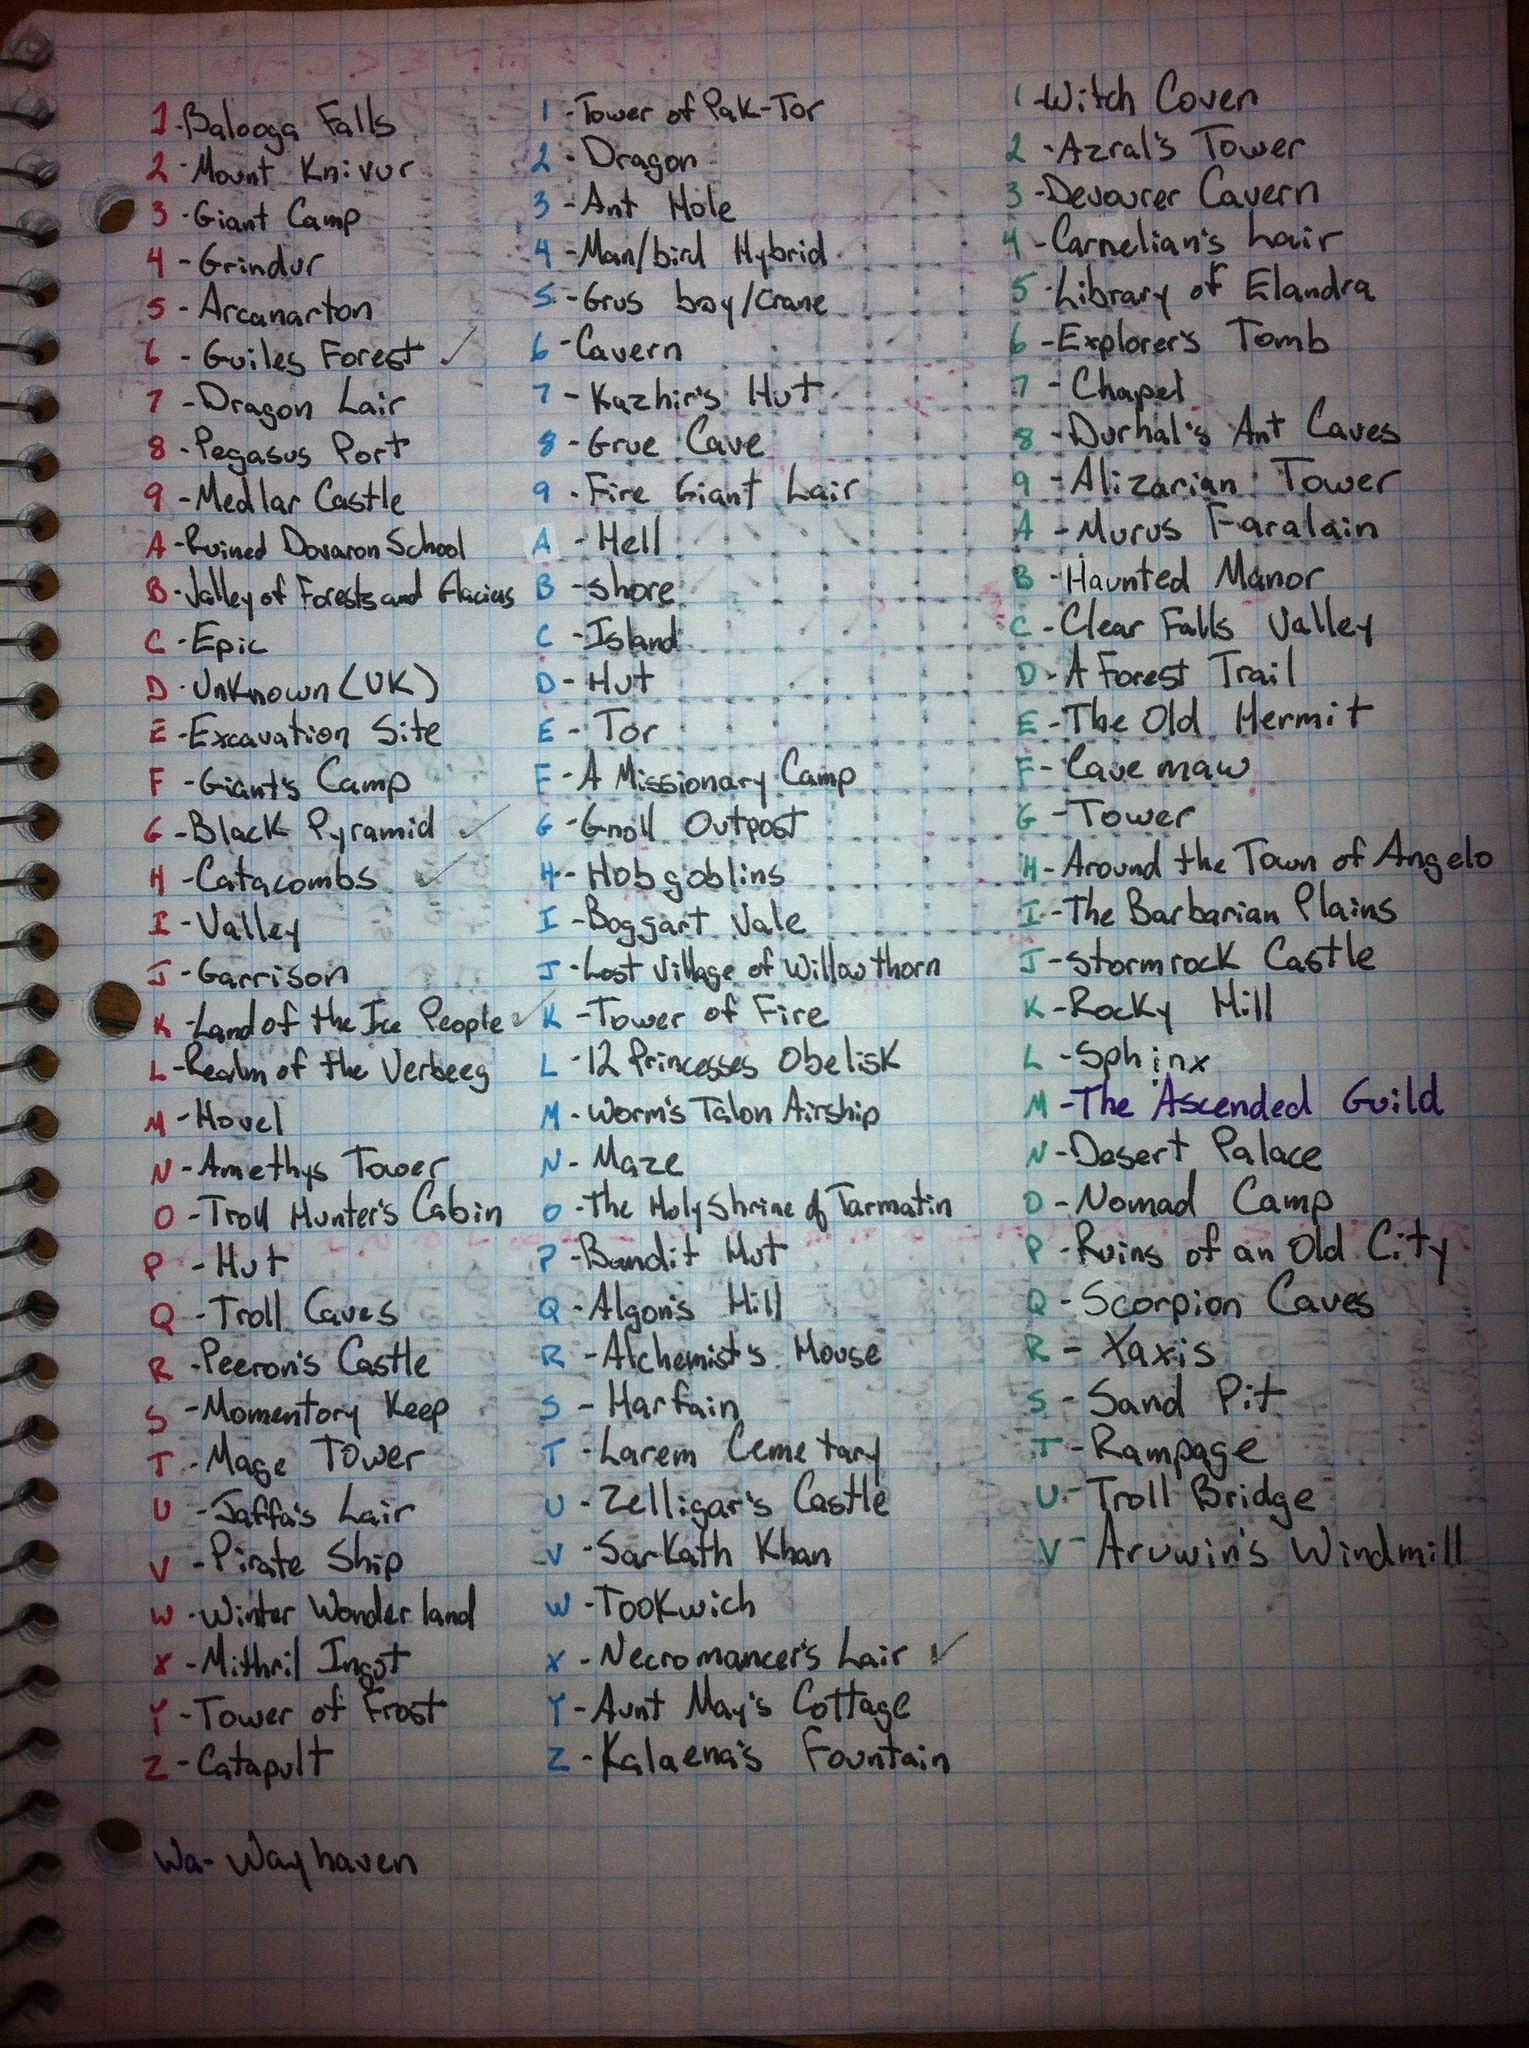 1-Balooga Falls
2-Mount Knivur
3-Giant Camp
4-Grindur
5-Arcanarton
6-Guiles Forest ✓
7-Dragon Lair
8-Pegasus Port
9-Medlar Castle
A-Ruined Dovaron School
B-Valley of Forests and Glaciers
C-Epic
D-Unknown (UK)
E-Excavation Site
F-Giant's Camp
G-Black Pyramid ✓
H-Catacombs ✓
I-Valley
J-Garrison
K-Land of the Ice People ✓
L-Realm of the Verbeeg
M-Hovel
N-Amethys Tower
O-Troll Hunter's Cabin
P-Hut
Q-Troll Caves
R-Peeron's Castle
S-Momentory Keep
T-Mage Tower
U-Jaffa's Lair
V-Pirate Ship
W-Winter Wonderland
X-Mithril Ingot
Y-Tower of Frost
Z-Catapult
Wa-Wayhaven
1-Tower of Pak-Tor
2-Dragon
3-Ant Hole
4-Man/bird Hybrid
5-Grus bay/crane
6-Cavern
7-Kazhir's Hut
8-Grue Cave
9-Fire Giant Lair
A-Hell
B-shore
C-Island
D-Hut
E-Tor
F-A Missionary Camp
G-Gnoll Outpost
H-Hobgoblins
I-Boggart Vale
J-Lost Village of Willowthorn
K-Tower of Fire
L-12 Princesses Obelisk
M-Worm's Talon Airship
N-Maze
O-The Holy Shrine of Tarmatin
P-Bandit Hut
Q-Algon's Hill
R-Alchemist's House
S-Harfain
T-Larem Cemetary
U-Zelligar's Castle
V-Sarkath Khan
W-Tookwich
X-Necromancer's Lair ✓
Y-Aunt May's Cottage
Z-Kalaena's Fountain
1-Witch Coven
2-Azral's Tower
3-Devourer Cavern
4-Carnelian's Lair
5-Library of Elandra
6-Explorer's Tomb
7-Chapel
8-Durhal's Ant Caves
9-Alizarian Tower
A-Murus Faralain
B-Haunted Manor
C-Clear Falls Valley
D-A Forest Trail
E-The Old Hermit
F-Cave maw
G-Tower
H-Around the Town of Angelo
I-The Barbarian Plains
J-Stormrock Castle
K-Rocky Hill
L-Sphinx
M-The Ascended Guild
N-Desert Palace
O-Nomad Camp
P-Ruins of an Old City
Q-Scorpion Caves
R-Xaxis
S-Sand Pit
T-Rampage
U-Troll Bridge
V-Aruwin's Windmill